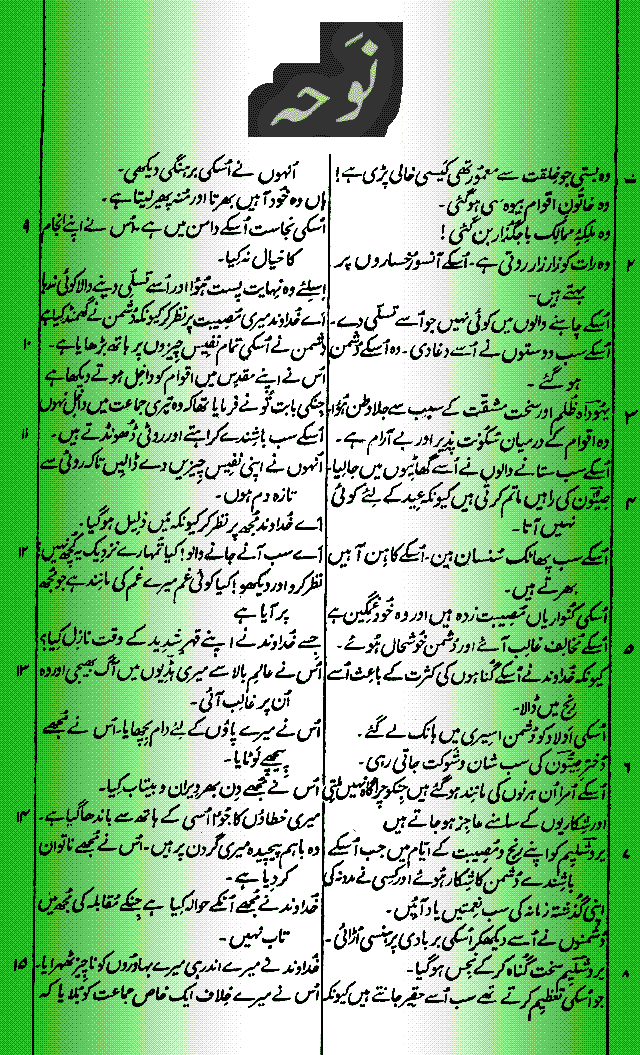 نَوحہ
وہ بستی جو خلقت سے معمور تھی کیسی خالی پڑی ہے!
وہ خاتونِ اقوام بیوہ سی ہو گئی۔
وہ ملکۂ ممالک باجگذار بن گئی!
۲ وہ رات کو زار زار روتی ہے۔ اُسکے آنسو رُخساروں پر
بہتے ہیں۔
اُسکے چاہنے والوں میں کوئی نہیں جو اُسے تسلی دے۔
اُسکے سب دوستوں نے اُسے دغا دی۔ وہ اُسکے دُشمن
ہو گئے۔
۳ یہوداہ ظلم اور سخت مشقت کے سبب سے جلاوطن ہُوا۔
وہ اقوام کے درمیان سکونت پذیر اور بے آرام ہے۔
اُسکے سب ستانے والوں نے اُسے گھاٹیوں میں جا لیا۔
۴ صیون کی راہیں ماتم کرتی ہیں کیونکہ عید کے لئے کوئی
نہیں آتا۔
اُسکے سب پھاٹک سُنسان ہیں۔ اُسکے کاہن آہیں
بھرتے ہیں۔
اُسکی کنواریاں مُصیبت زدہ ہیں اور وہ خُود غمگین ہے
۵ اُسکے مخالف غالب آئے اور دُشمن خُوشحال ہُوئے۔
کیونکہ خُداوند نے اُسکے گناہوں کی کثرت کے باعث اُسے
رنج میں ڈالا۔
اُسکی اَولاد کو دُشمن اسیری میں ہانک لے گئے۔
۶ دُخترِ صیون کی سب شان و شوکت جاتی رہی۔
اُسکے اُمرا اُن ہرنوں کی مانند ہو گئے ہیں جنکو چراگاہ نہیں ملتی
اور شکاریوں کے سامنے عاجز ہو جاتے ہیں
۷ یروشلیم کو اپنے رنج و مُصیبت کے ایام میں جب اُسکے
باشندے دُشمن کا شکار ہُوئے اور کسی نے مدد نہ کی
اپنی گذشتہ زمانہ کی سب نعمتیں یاد آئیں۔
دُشمنوں نے اُسے دیکھکر اُسکی بربادی پر ہنسی اُڑائی۔
۸ یروشلیم سخت گناہ کر کے نجس ہو گیا۔
جو اُسکی تعظیم کرتے تھے سب اُسے حقیر جانتے ہیں کیونکہ
اُنہوں نے اُسکی برہنگی دیکھی۔
ہاں وہ خُود آہیں بھرتا اور مُنہ پھیر لیتا ہے۔
۹ اُسکی نجاست اُسکے دامن میں ہے۔ اُس نے اپنے انجام
کا خیال نہ کیا۔
اِسلئے وہ نہایت پست ہُوا اور اُسے تسلی دینے والا کوئی نہ رہا
اَے خُداوند میری مُصیبت پر نظر کر کیونکہ دُشمن نے گھمنڈ کیا ہے
۱۰ دُشمن نے اُسکی تمام نفیس چیزوں پر ہاتھ بڑھایا ہے۔
اُس نے اپنے مقدِس میں اقوام کو داخل ہوتے دیکھا ہے
جنکی بابت تُو نے فرمایا تھا کہ وہ تیری جماعت میں داخل نہ ہوں
۱۱ اُسکے سب باشندے کراہتے اور روٹی ڈھونڈتے ہیں۔
اُنہوں نے اپنی نفیس چیزیں دے ڈالیں تاکہ روٹی سے
تازہ دم ہوں۔
اَے خُداوند مُجھ پر نظر کر کیونکہ میں ذلیل ہو گیا۔
۱۲ اَے سب آنے جانے والو! کیا تُمہارے نزدیک یہ کُچھ نہیں؟
نظر کرو اور دیکھو! کیا کوئی غم میرے غم کی مانند ہے جو مُجھ
پر آیا ہے
جسے خُداوند نے اپنے قہرِ شدید کے وقت نازل کیا؟
۱۳ اُس نے عالمِ بالا سے میری ہڈیوں میں آگ بھیجی اور وہ
اُن پر غالب آئی۔
اُس نے میرے پاؤں کے لئے دام بچھایا۔ اُس نے مُجھے
پیچھے لَوٹایا۔
اُس نے مُجھے دن بھر ویران و بیتاب کیا۔
۱۴ میری خطاؤں کا جُوا اُسی کے ہاتھ سے باندھا گیا ہے۔
وہ باہم پیچیدہ میری گردن پر ہیں۔ اُس نے مُجھے ناتوان
کر دیا ہے۔
خُداوند نے مُجھے اُنکے حوالہ کیا ہے جنکے مُقابلہ کی مُجھ میں
تاب نہیں۔
۱۵ خُداوند نے میرے اندر ہی میرے بہادروں کو ناچیز ٹھہرایا۔
اُس نے میرے خلاف ایک خاص جماعت کو بُلایا کہ